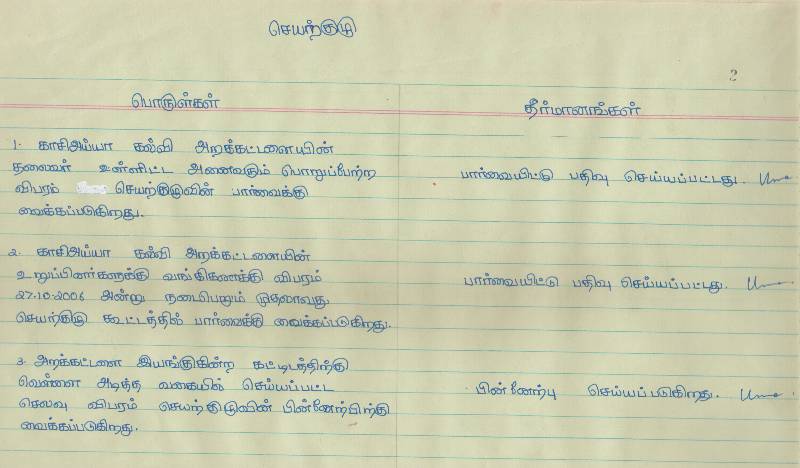 செயற்குழு
2
பொருள்கள்
தீர்மானங்கள்
1. காசிஅய்யா கல்வி அறக்கட்டளையின்
தலைவர் உள்ளிட்ட அனைவரும் பொறுப்பேற்ற
விபரம் செயற்குழுவின் பார்வைக்கு
வைக்கப்படுகிறது.
பார்வையிட்டு பதிவு செய்யப்பட்டது.
2. காசிஅய்யா கல்வி அறக்கட்டளையின்
உறுப்பினர்களுக்கு வங்கிகணக்கு விபரம்
27-10-2006 அன்று நடைபெறும் முதலாவது
செயற்குழு கூட்டத்தில் பார்வைக்கு வைக்கப்படுகிறது.
பார்வையிட்டு பதிவு செய்யப்பட்டது.
3. அறக்கட்டளை இயங்குகின்ற கட்டிடத்திற்கு
வெள்ளை அடித்த வகையில் செய்யப்பட்ட
செலவு விபரம் செயற்குழுவின் பின்னேற்பிற்கு
வைக்கப்படுகிறது.
பின்னேற்பு செய்யப்படுகிறது.